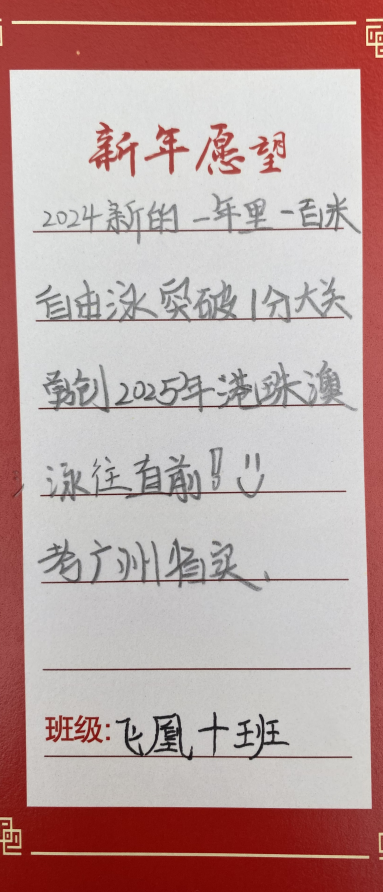 新年愿望
2024新的一年里一百米
自由泳突破1分大关
2025年港珠澳
泳往直前！
考广州省实、
班级:飞凰十班